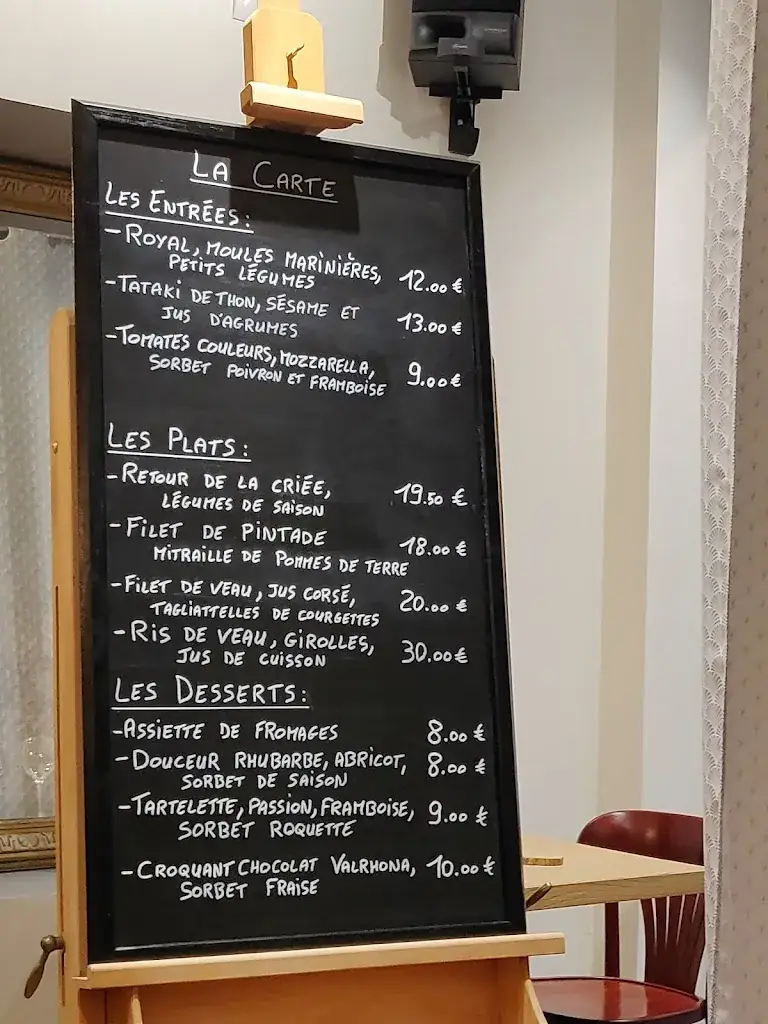 LA CARTE
LES ENTRÉES:
-ROYAL, MOULES MARINIÈRES,
PETITS LÉGUMES 12.00 €
-TATAKI DE THON, SÉSAME ET
JUS D'AGRUMES 13.00 €
-TOMATES COULEURS, MOZZARELLA,
SORBET POIVRON ET FRAMBOISE 9.00 €
LES PLATS:
-RETOUR DE LA CRIÉE,
LÉGUMES DE SAISON 19.50 €
-FILET DE PINTADE
MITRAILLE DE POMMES DE TERRE 18.00 €
-FILET DE VEAU, JUS CORSÉ,
TAGLIATTELLES DE COURGETTES 20.00 €
-RIS DE VEAU, GIROLLES,
JUS DE CUISSON 30.00 €
LES DESSERTS:
-ASSIETTE DE FROMAGES 8.00 €
-DOUCEUR RHUBARBE, ABRICOT,
SORBET DE SAISON 8.00 €
-TARTELETTE, PASSION, FRAMBOISE,
SORBET ROQUETTE 9.00 €
-CROQUANT CHOCOLAT VALRHONA,
SORBET FRAISE 10.00 €